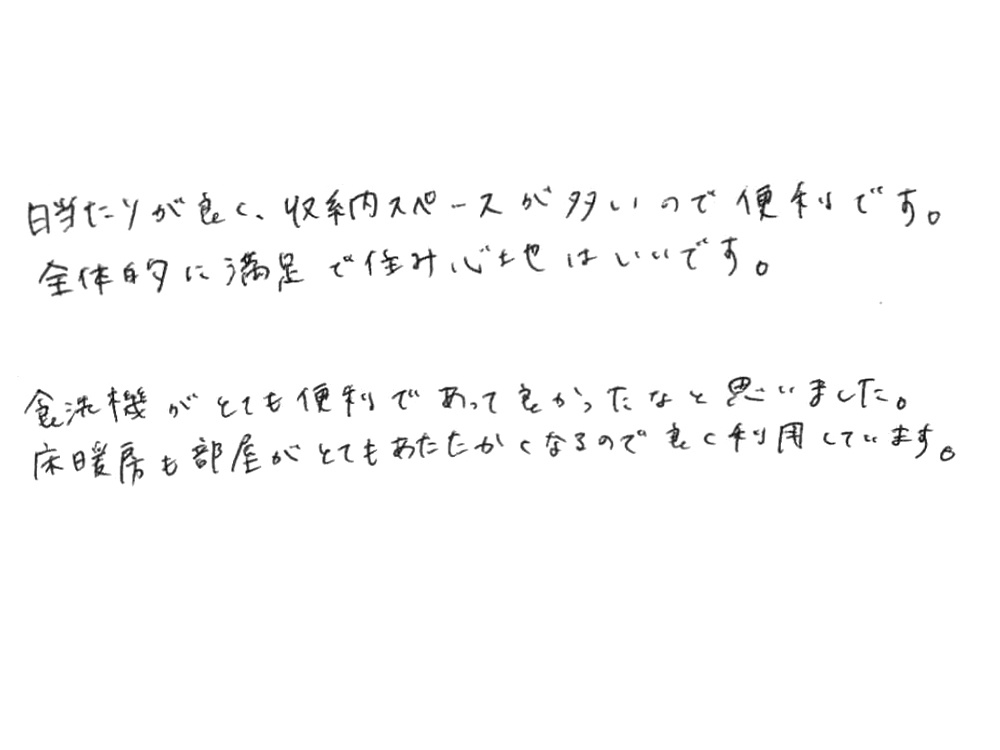 日当たりが良く、収納スペースが多いので便利です。
全体的に満足で住み心地はいいです。
食洗機がとても便利であって良かったなと思いました。
床暖房も部屋がとてもあたたかくなるので良く利用しています。